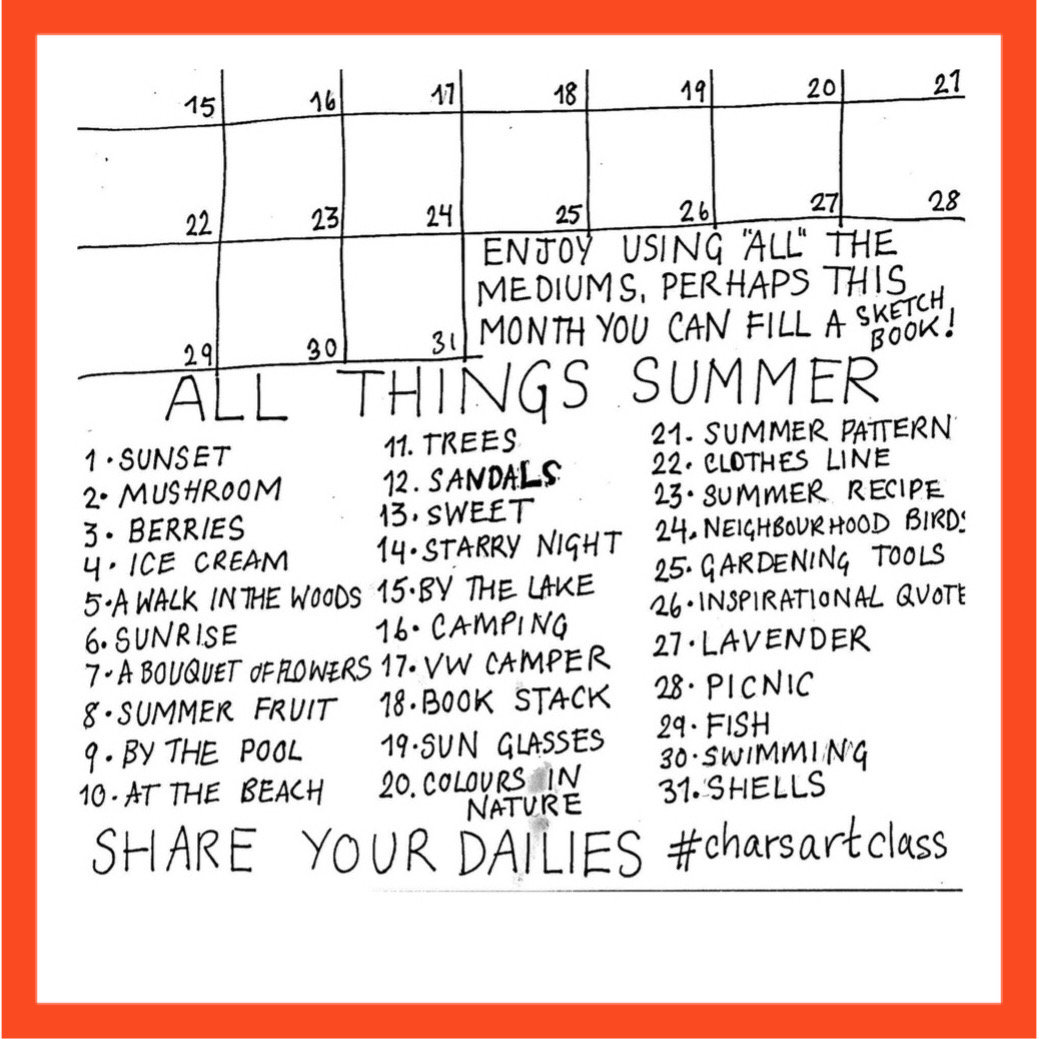 15 16 17 18 19 20 21
22 23 24 25 26 27 28
ENJOY USING "ALL" THE
MEDIUMS, PERHAPS THIS
MONTH YOU CAN FILL A SKETCH
BOOK!
29 30 31
ALL THINGS SUMMER
1. SUNSET
2. MUSHROOM
3. BERRIES
4. ICE CREAM
5. A WALK IN THE WOODS
6. SUNRISE
7. A BOUQUET OF FLOWERS
8. SUMMER FRUIT
9. BY THE POOL
10. AT THE BEACH
11. TREES
12. SANDALS
13. SWEET
14. STARRY NIGHT
15. BY THE LAKE
16. CAMPING
17. VW CAMPER
18. BOOK STACK
19. SUN GLASSES
20. COLOURS IN
NATURE
21. SUMMER PATTERN
22. CLOTHES LINE
23. SUMMER RECIPE
24. NEIGHBOURHOOD BIRDS
25. GARDENING TOOLS
26. INSPIRATIONAL QUOTE
27. LAVENDER
28. PICNIC
29. FISH
30. SWIMMING
31. SHELLS
SHARE YOUR DAILIES #charsartclass